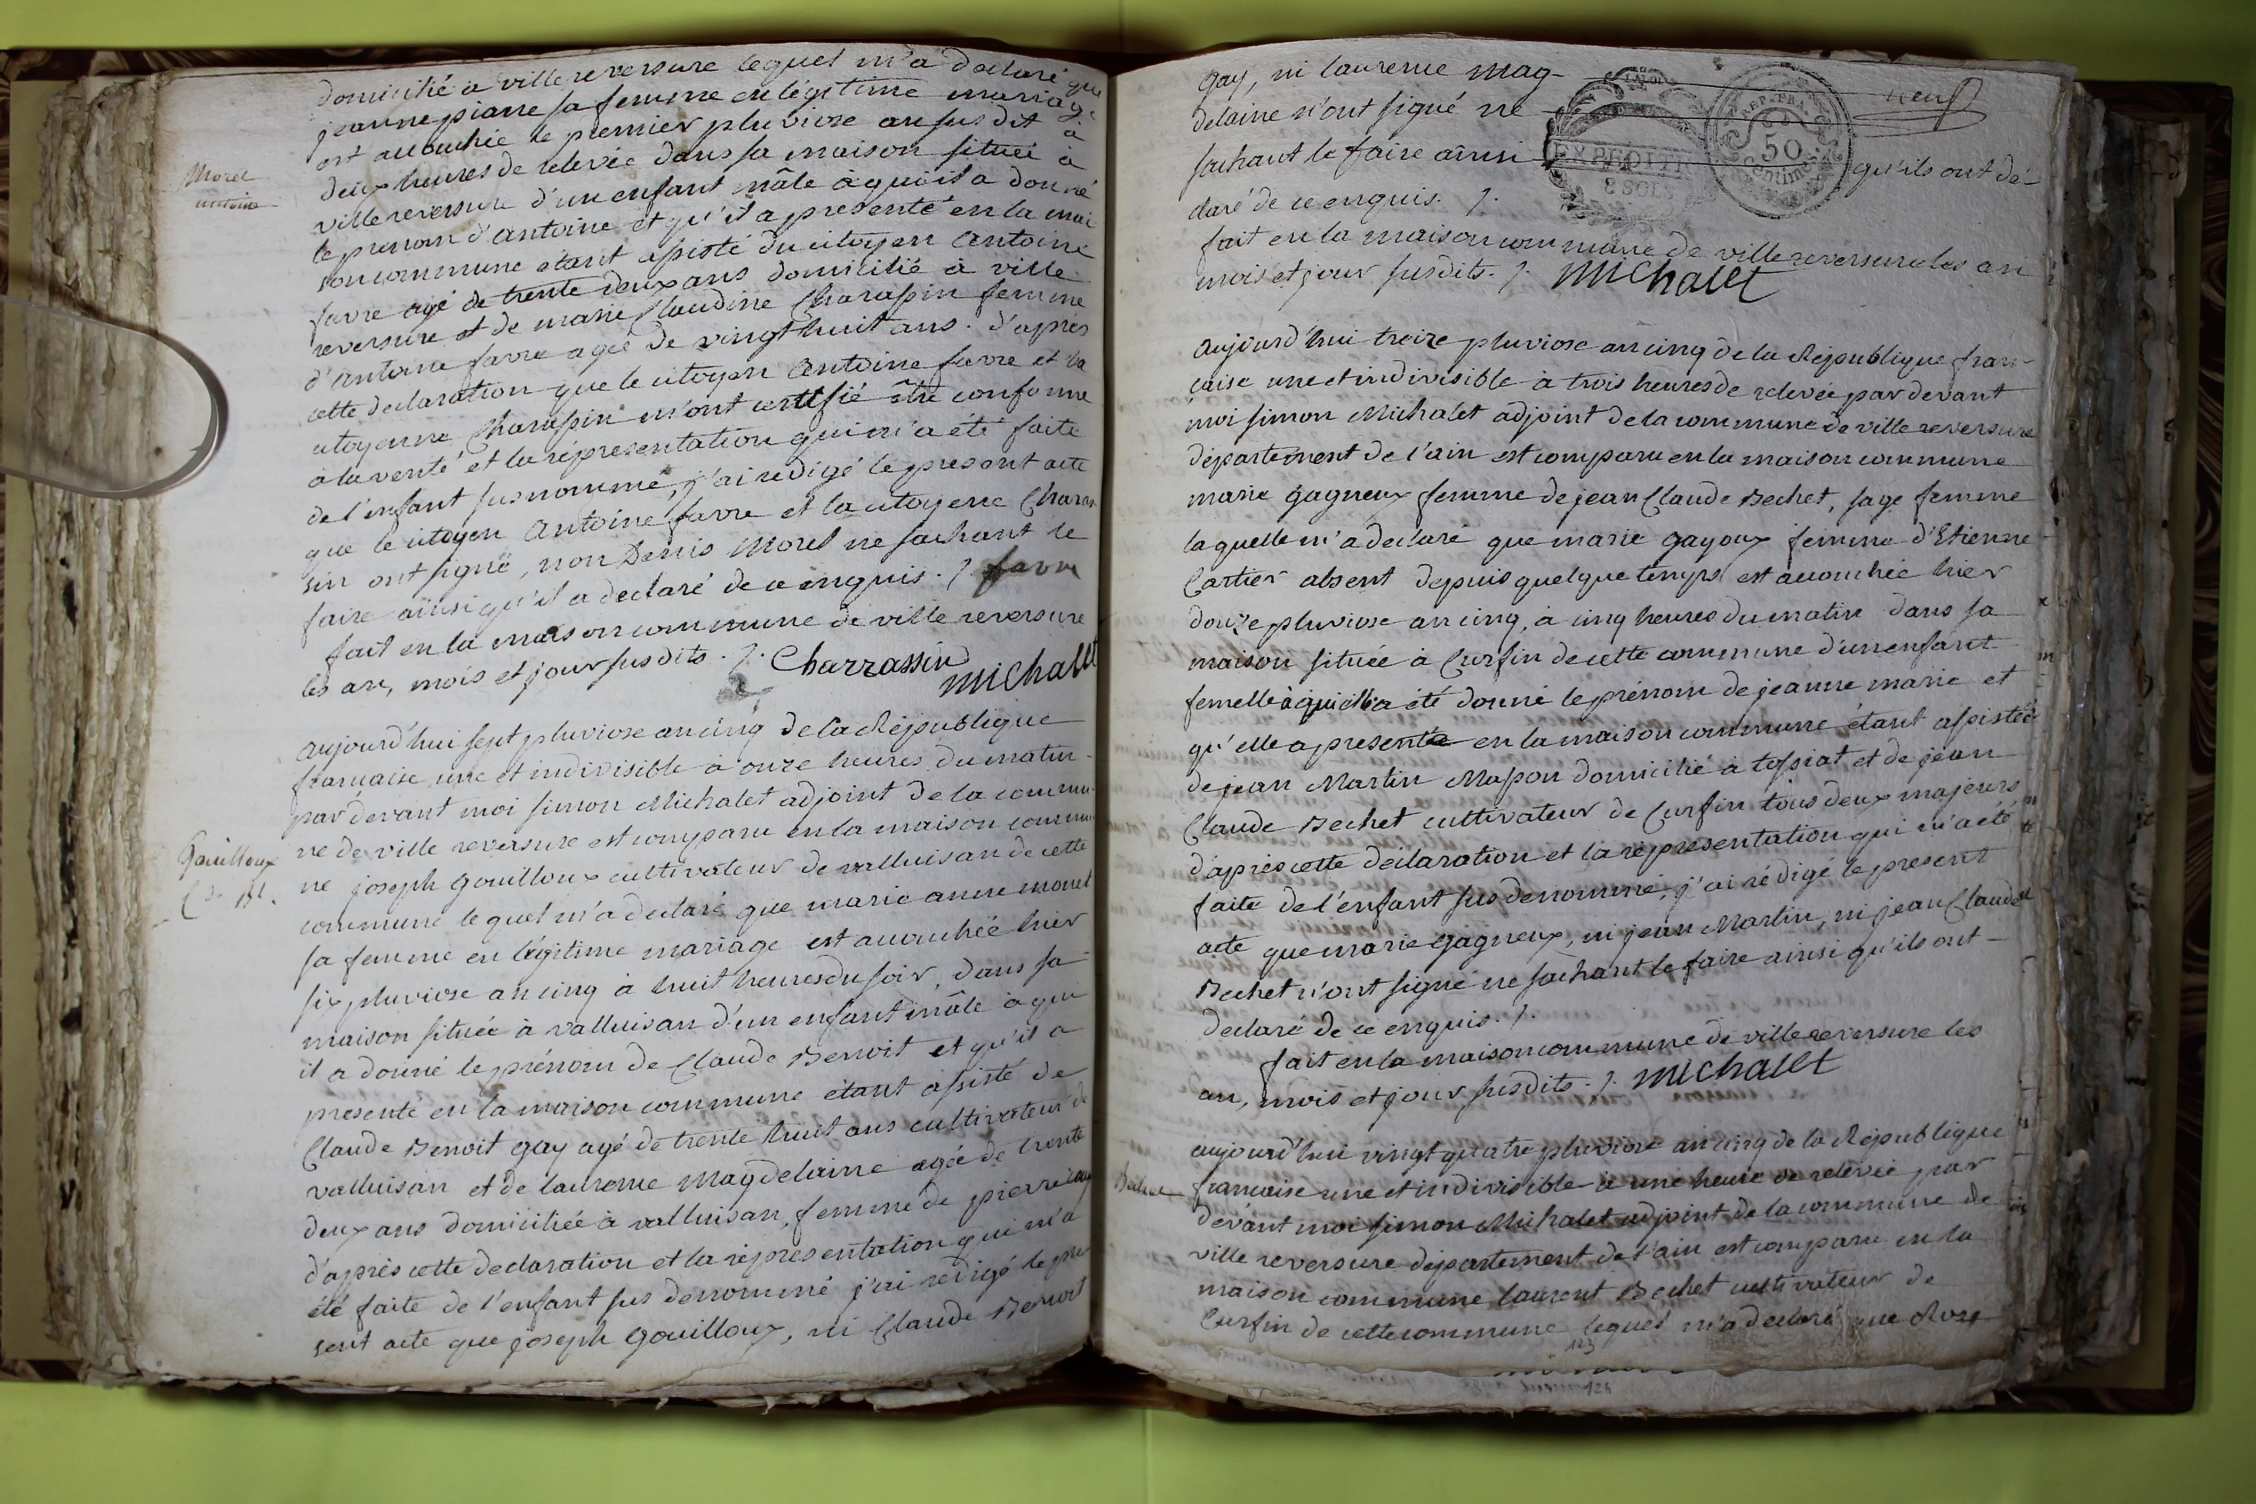 domicilié a ville reversure lequel m'a declaré que
jeanne piane sa femme en légitime mariage
est accouchée le premier pluviose an susdit à
deux heures de relevée dans sa maison située à
ville reversure d'un enfant mâle à qui il a donné
le prenom d'antoine et qu'il a presenté en la mai
son commune étant assisté du citoyen antoine
favre agé de trente deux ans domicilié à ville
reversure et de marie Claudine Charassin femme
d'antoine favre agée de vingt huit ans. d'après
cette declaration que le citoyen antoine favre et la
citoyenne Charassin m'ont certifié être conforme
à la verité et la représentation qui m'a été faite
de l'enfant susnommé, j'ai redigé le present acte
que le citoyen antoine favre et la citoyene Charas
sin ont signé, non Denis Morel ne sachant le
faire ainsi qu'il a declaré de ce enquis. /. favre
fait en la maison commune de ville reversure
les an, mois et jour susdits. /. Charrassin
michalet
Morel
antoine
aujourd'hui sept pluviose an cinq de la République
française une et indivisible à onze heures du matin
par devant moi simon Michalet adjoint de la commu
ne de ville reversure est comparu en la maison commu
ne joseph gouilloux cultivateur de valluisan de cette
commune lequel m'a declaré que marie anne monet
sa femme en légitime mariage est accouchée hier
six pluviose an cinq à huit heures du soir, dans sa
maison située à valluisan d'un enfant mâle à qui
il a donné le prénom de Claude Benoit et qu'il a
presenté en la maison commune étant assisté de
Claude Benoit gay agé de trente huit ans cultivateur de
valluisan et de laurence Magdelaine agée de trente
deux ans domiciliée à valluisan, femme de pierre gay
d'après cette declaration et la représentation qui m'a
été faite de l'enfant sus denommé j'ai redigé le pre
sent acte que joseph gouilloux, ni Claude Benoit
Gouilloux
gay, ni laurence mag-
delaine n'ont signé ne
sachant le faire ainsi qu'ils ont dé-
claré de ce enquis. /.
fait en la maison commune de ville reversure les an
mois et jour susdits. /. michalet
REP. FRA.
50
Centimes
EXPEDITR
8 SOLS
neuf
aujourd'hui treize pluviose an cinq de la République fran-
çaise une et indivisible à trois heures de relevée par devant
moi simon Michalet adjoint de la commune de ville reversure
département de l'ain est comparu en la maison commune
marie gagneux femme de jean Claude Bechet, sage femme
laquelle m'a declaré que marie gayoux femme d'Etienne
Cartier absent depuis quelque temps est accouchée hier
douze pluviose an cinq, à cinq heures du matin dans sa
maison située à Cursin de cette commune d'un enfant
femelle à qui il a été donné le prénom de jeanne marie et
qu'elle a presentée en la maison commune étant assistée
de jean Martin Masson domicilié à tossiat et de jean
Claude Bechet cultivateur de Cursin tous deux majeurs
d'après cette déclaration et la représentation qui m'a été
faite de l'enfant sus denommé, j'ai rédigé le present
acte que marie gagneux, ni jean Martin, ni jean Claude
Bechet n'ont signé ne sachant le faire ainsi qu'ils ont
declaré de ce enquis. /.
fait en la maison commune de ville reversure les
an, mois et jour susdits. /. michalet
aujourd'hui vingt quatre pluviose an cinq de la République
francaise une et indivisible à une heure de relevée par
devant moi simon Michalet adjoint de la commune de
ville reversure département de l'ain est comparu en la
maison commune laurent Bechet cultivateur de
Cursin de cette commune lequel m'a declaré que Rose
Bechet
123
124